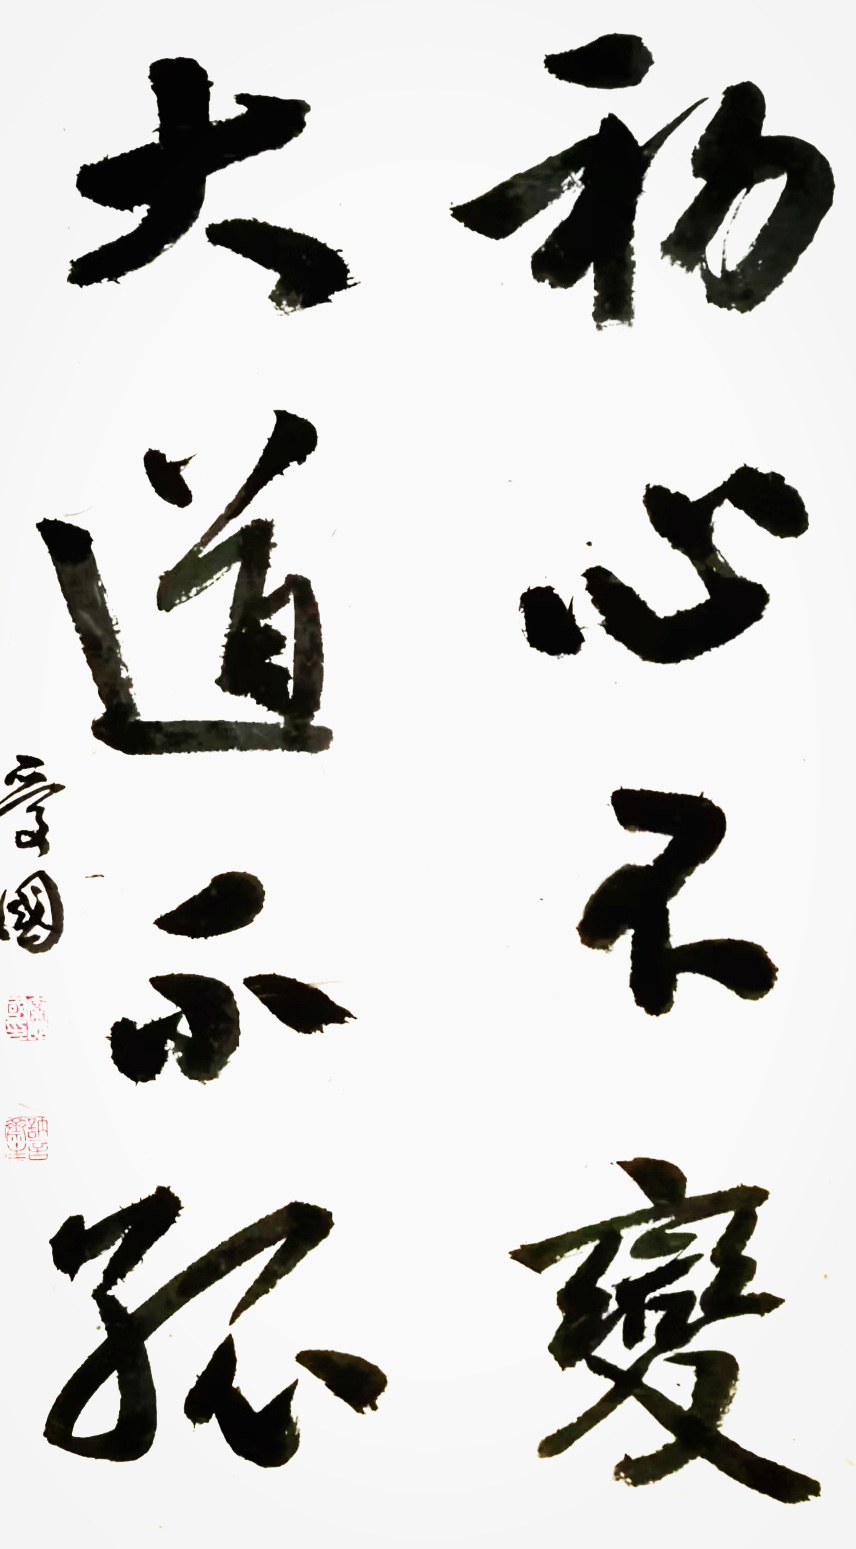 初心不變
大道不孤
愛國